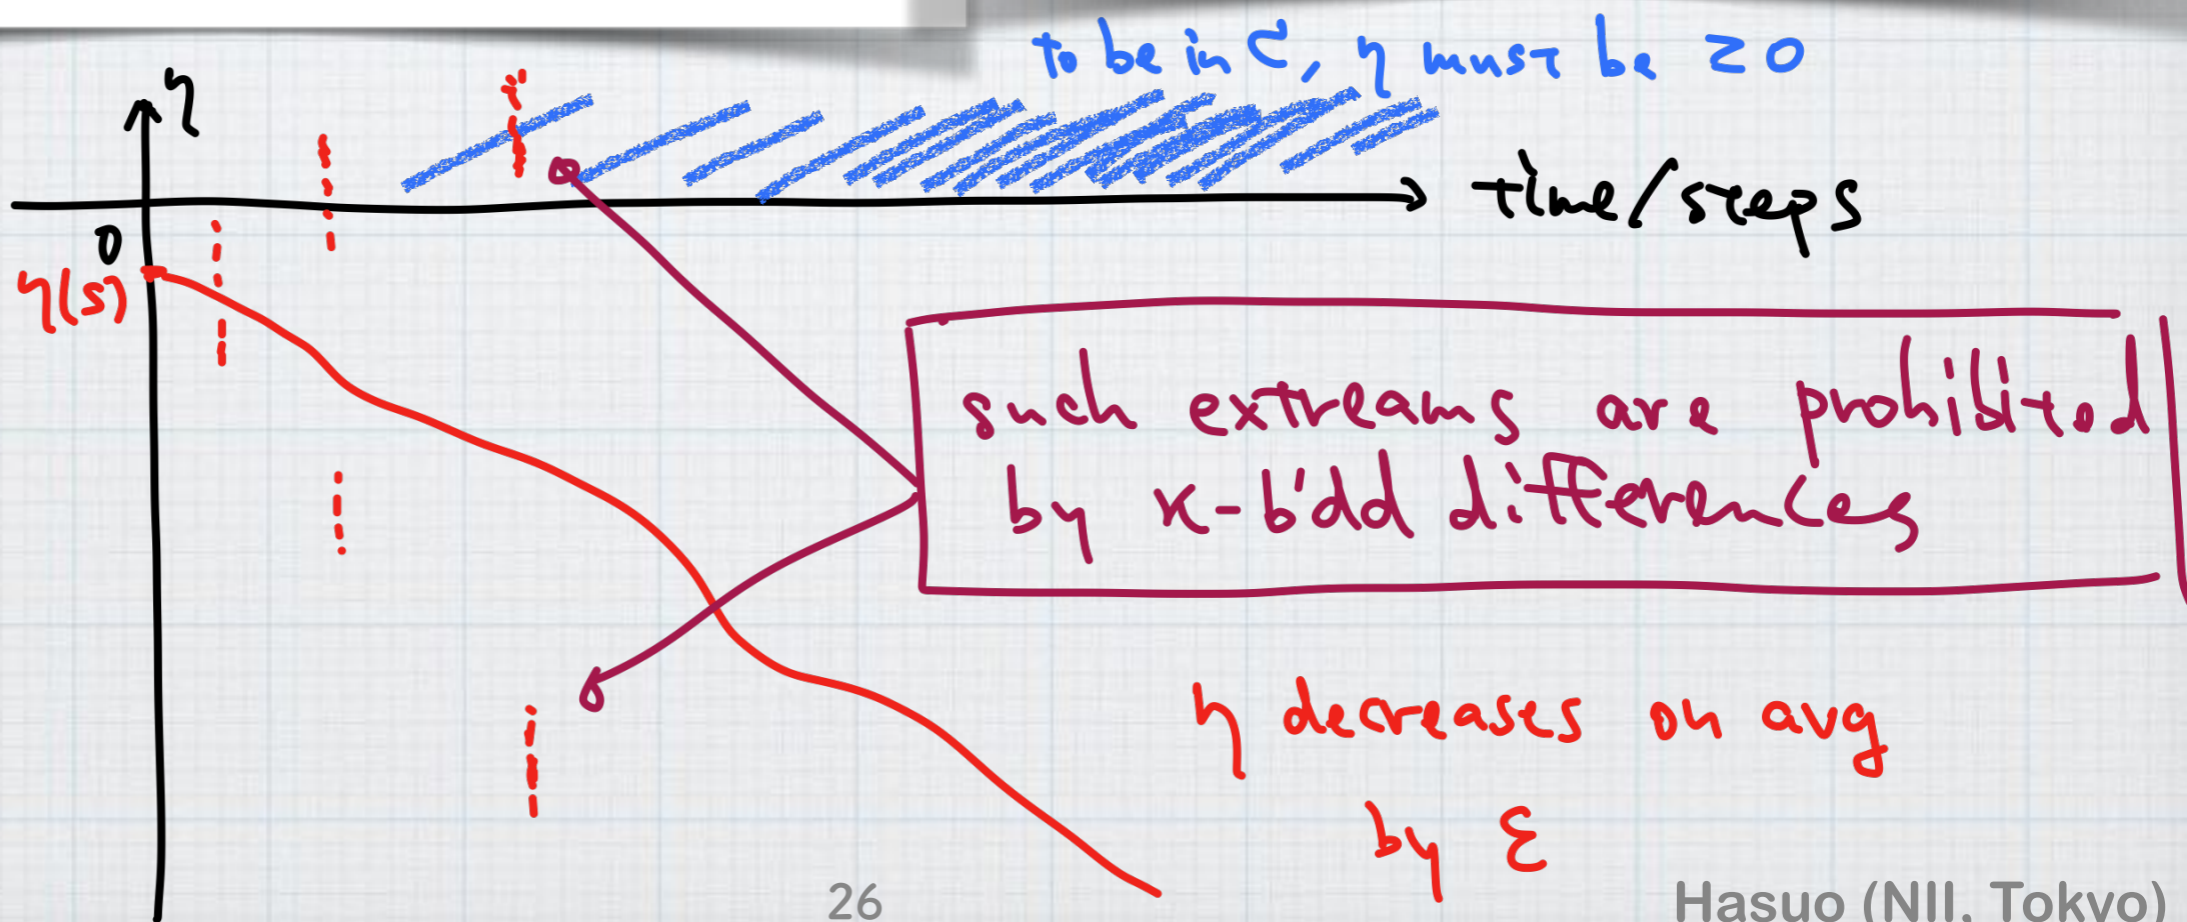 to be in C, η must be ≥0
η
time/steps
0
η(s)
such extreams are prohibited
by κ-b'dd differences
η decreases on avg
by ε
26
Hasuo (NII, Tokyo)